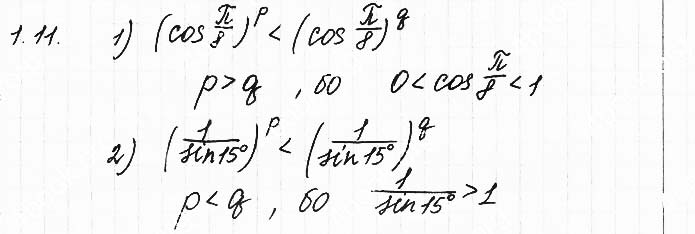 1.11. 1) (cos π/8)^p < (cos π/8)^q
p > q , бо 0 < cos π/8 < 1
2) (1/sin 15°)^p < (1/sin 15°)^q
p < q , бо 1/sin 15° > 1